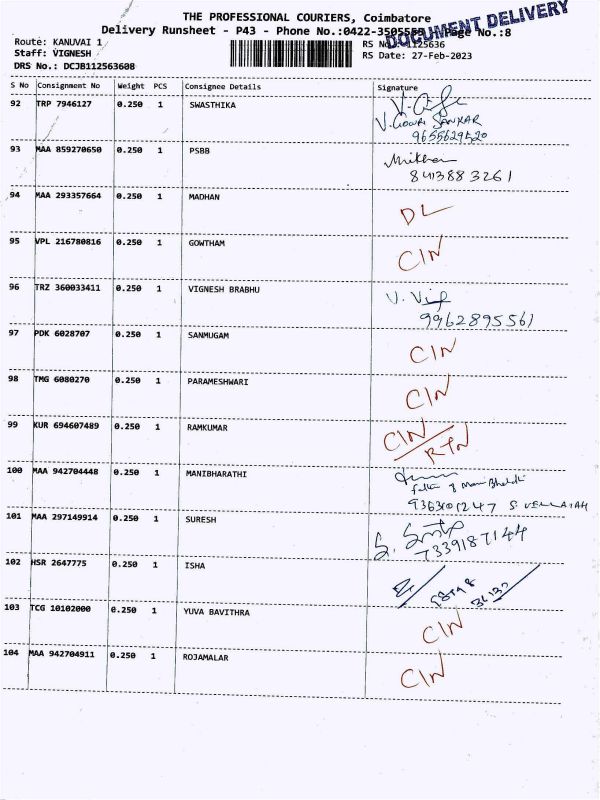 THE PROFESSIONAL COURIERS, Coimbatore
DOCUMENT DELIVERY
Delivery Runsheet - P43 - Phone No.:0422-3505555 Page No.:8
Route: KANUVAI 1
Staff: VIGNESH
DRS No.: DCJB112563608
RS No.: 1125636
RS Date: 27-Feb-2023
S No Consignment No Weight PCS Consignee Details Signature
92 TRP 7946127 0.250 1 SWASTHIKA
V. GOWRI SANKAR
9655629520
93 MAA 859270650 0.250 1 PSBB
8413883261
94 MAA 293357664 0.250 1 MADHAN DL
95 VPL 216780816 0.250 1 GOWTHAM CIN
96 TRZ 360033411 0.250 1 VIGNESH BRABHU
9962895561
97 PDK 6028707 0.250 1 SANMUGAM CIN
98 TMG 6080270 0.250 1 PARAMESHWARI CIN
99 KUR 694607489 0.250 1 RAMKUMAR CIN
RTN
100 MAA 942704448 0.250 1 MANIBHARATHI
9363101247 S. VELLAIAH
101 MAA 297149914 0.250 1 SURESH
7339187144
102 HSR 2647775 0.250 1 ISHA
103 TCG 10102000 0.250 1 YUVA BAVITHRA CIN
104 MAA 942704911 0.250 1 ROJAMALAR CIN